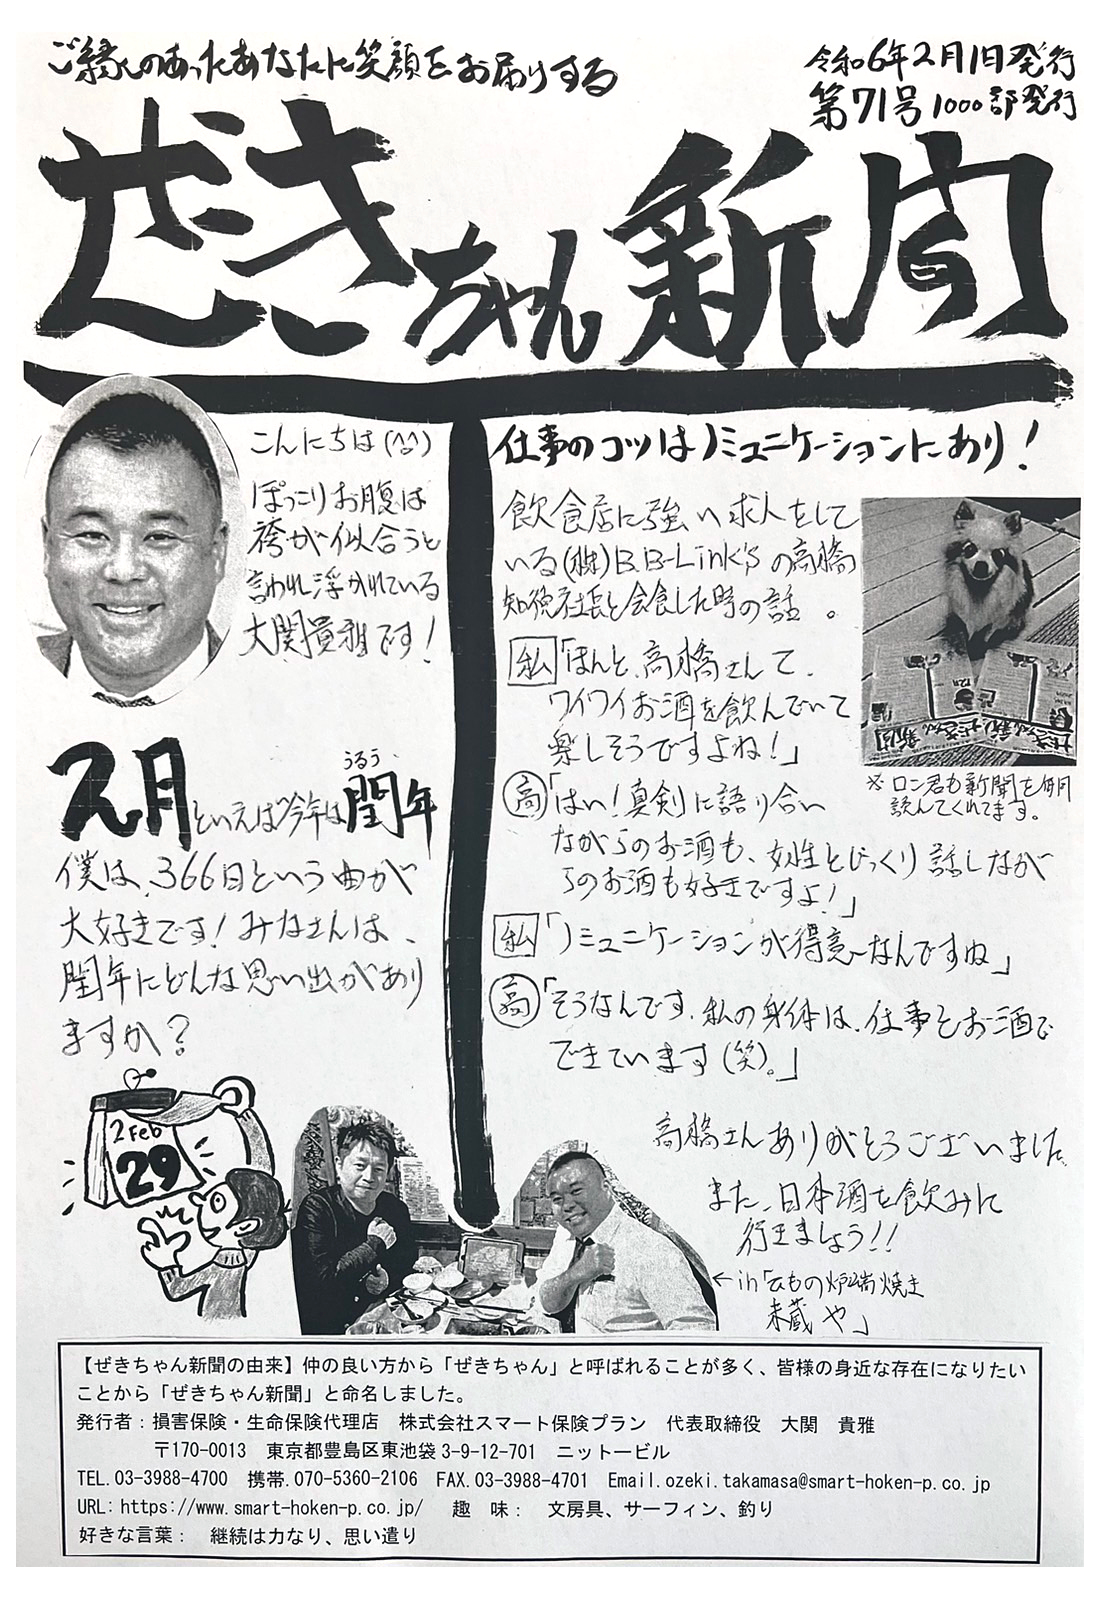 ご縁のあったあなたに笑顔をお届けする
令和6年2月1日発行
第71号 1000部発行
ぜきちゃん新聞
こんにちは(^^)
ぽっこりお腹は
袴が似合うと
言われ浮かれている
大関貴雅です!
2月といえば今年は閏年
うるう
僕は、366日という曲が
大好きです!みなさんは、
閏年にどんな思い出があり
ますか?
2 Feb
29
仕事のコツはノミュニケーションにあり!
飲食店に強い求人をして
いる(株)B.B-Link'sの高橋
知徳社長と会食した時の話。
私「ほんと、高橋さんて、
ワイワイお酒を飲んでいて
楽しそうですよね!」
高「はい!真剣に語り合い
ながらのお酒も、女性とじっくり話しなが
らのお酒も好きですよ!」
私「ノミュニケーションが得意なんですね」
高「そうなんです、私の身体は、仕事とお酒で
できています(笑)。」
※ロン君も新聞を毎月
読んでくれてます。
高橋さんありがとうございました
また、日本酒を飲みに
行きましょう!!
←in「炉端焼き
や」
【ぜきちゃん新聞の由来】仲の良い方から「ぜきちゃん」と呼ばれることが多く、皆様の身近な存在になりたい
ことから「ぜきちゃん新聞」と命名しました。
発行者:損害保険・生命保険代理店 株式会社スマート保険プラン 代表取締役 大関 貴雅
〒170-0013 東京都豊島区東池袋3-9-12-701 ニットービル
TEL.03-3988-4700 携帯.070-5360-2106 FAX.03-3988-4701 Email.ozeki.takamasa@smart-hoken-p.co.jp
URL:https://www.smart-hoken-p.co.jp/ 趣 味: 文房具、サーフィン、釣り
好きな言葉: 継続は力なり、思い遣り